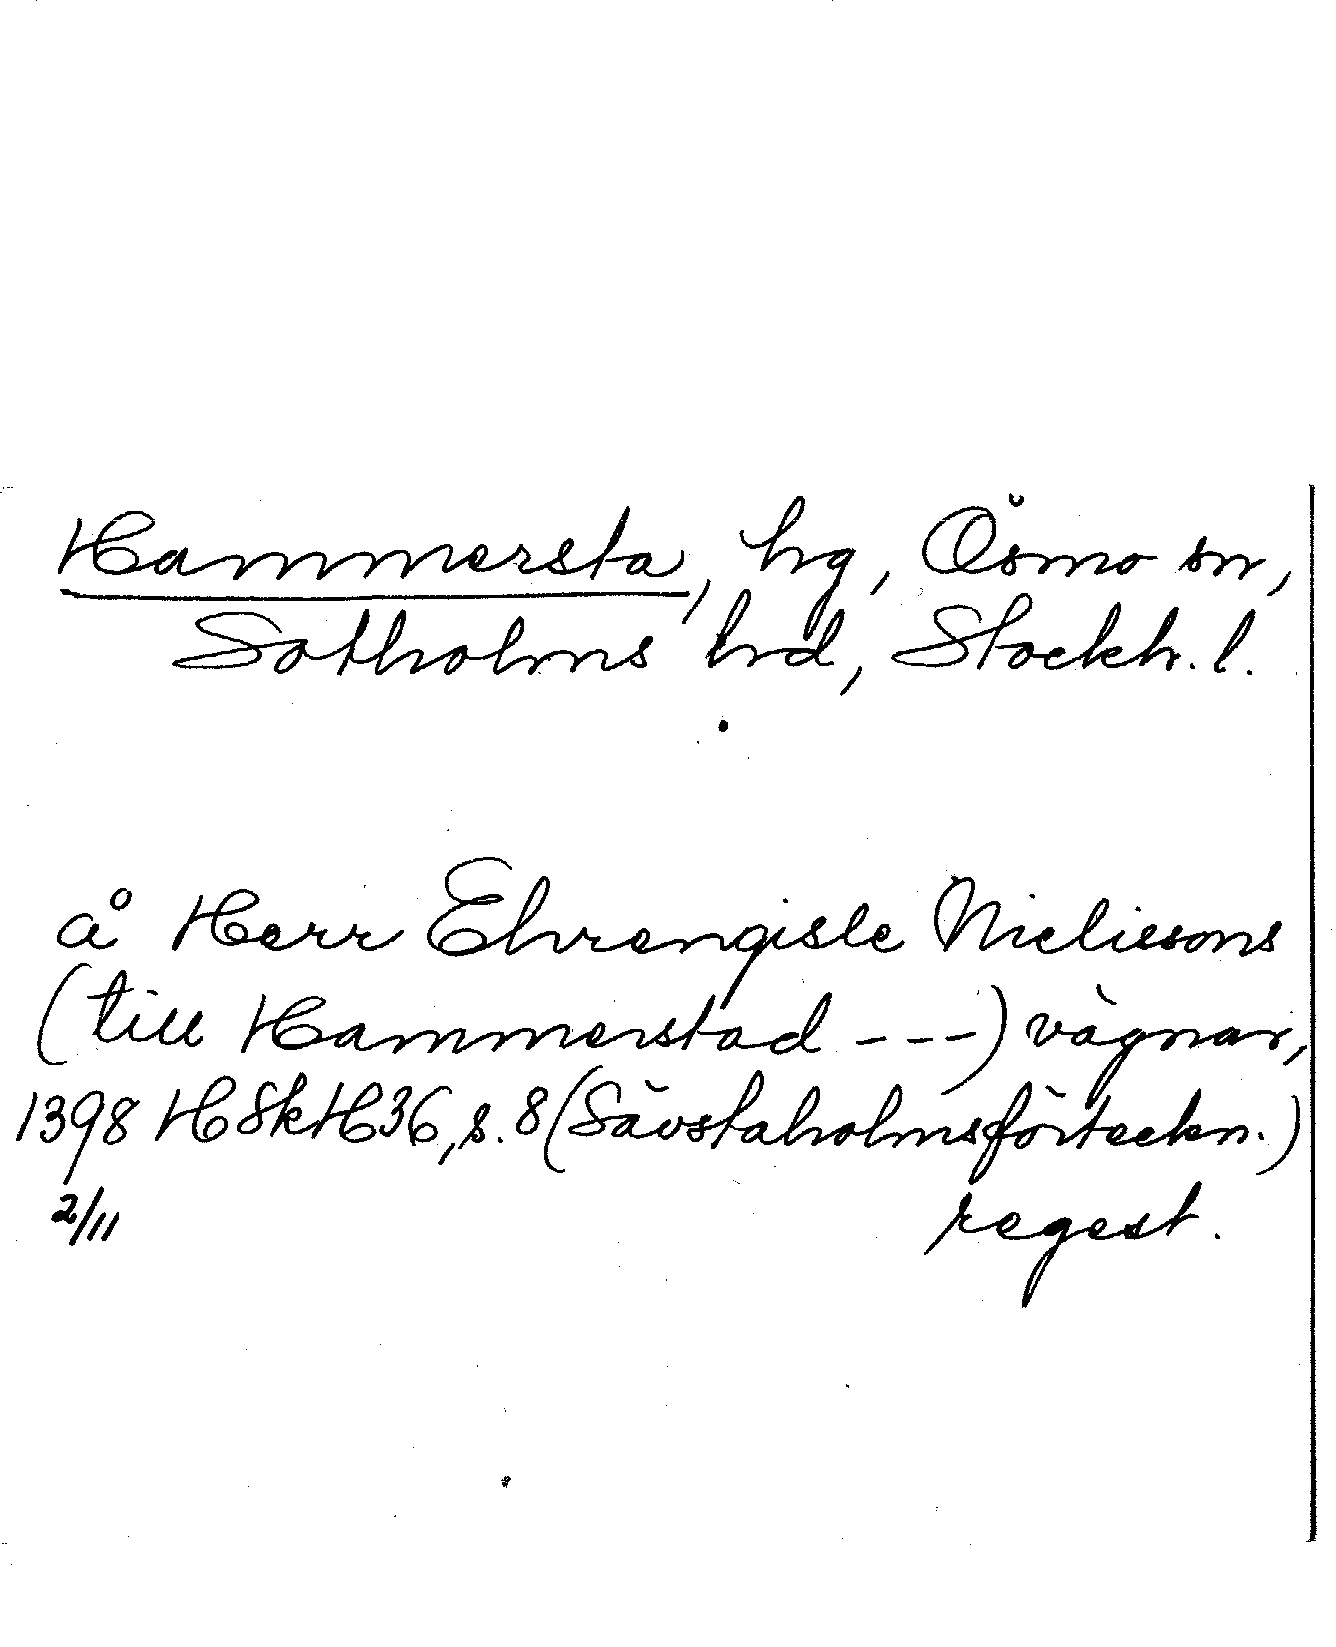 Hammersta, hg, Ösmo sn,
Sotholms hrd, Stockh. l.
å Herr Ehrengisle Nielissons
(till Hammerstad ---) vägnar,
1398 HSkH36, s. 8 (Sävstaholmsförteckn.)
2/11 regest.